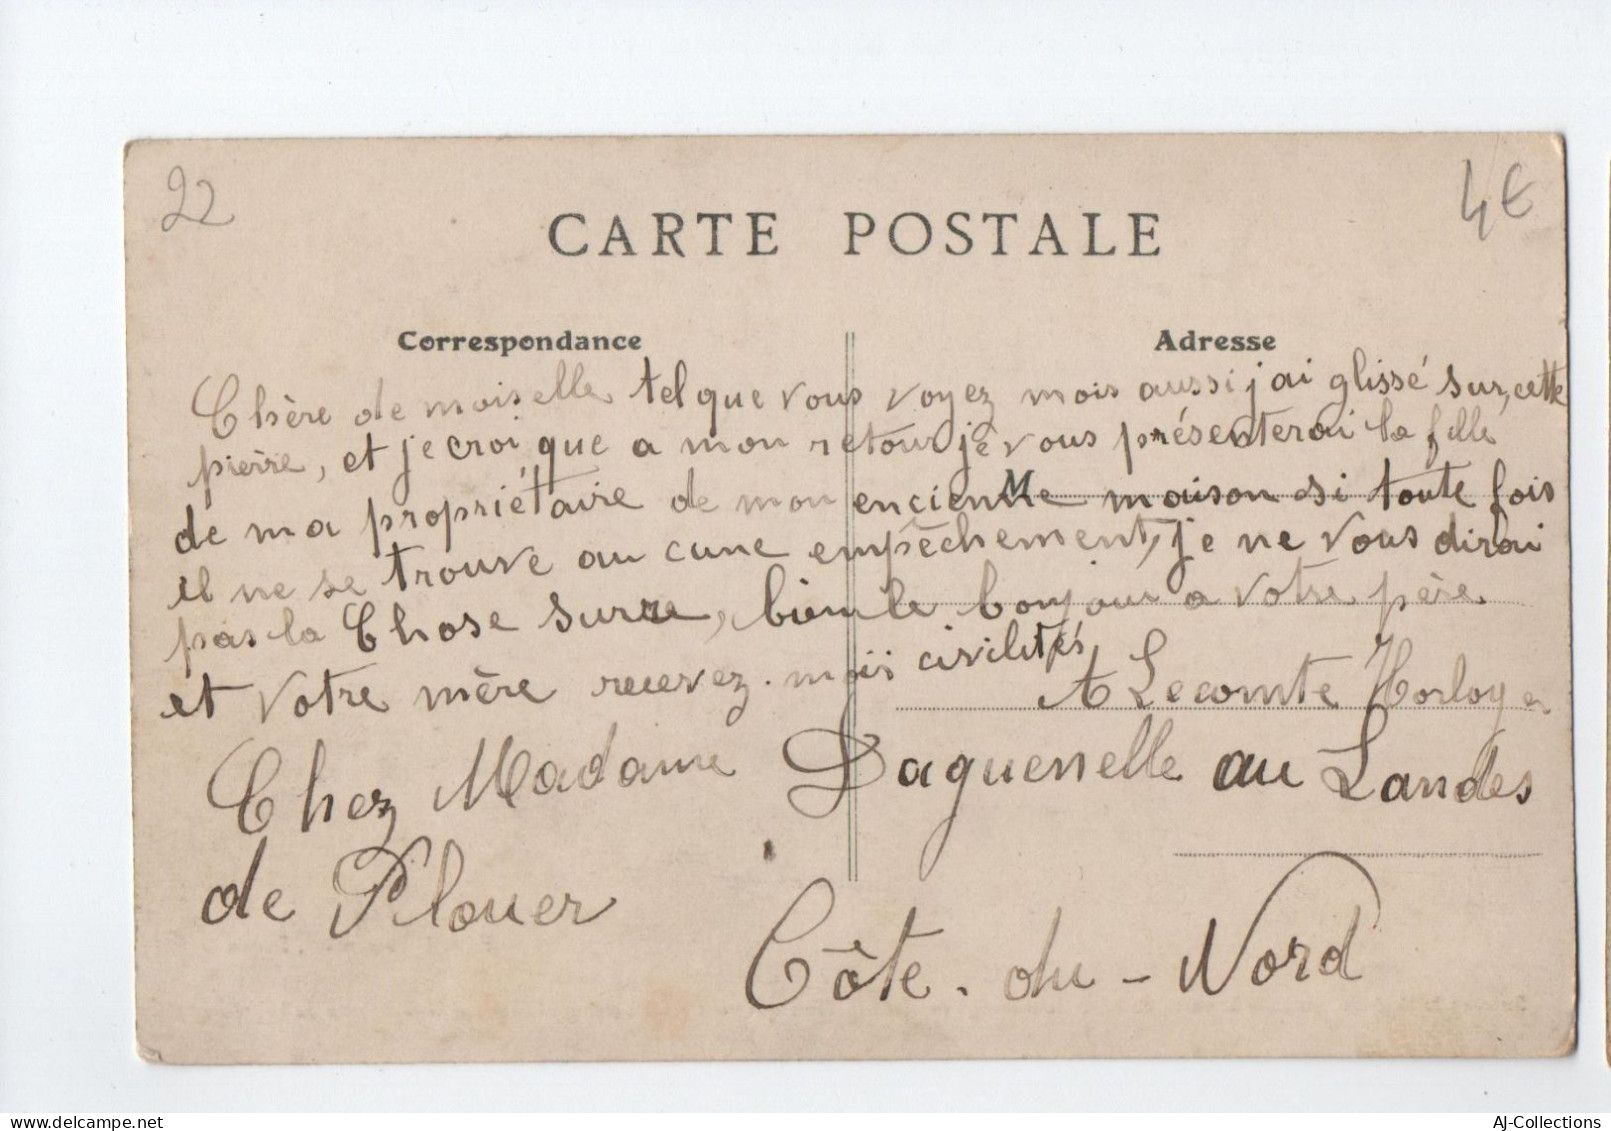 22
4€
CARTE POSTALE
Correspondance
Adresse
Chère de moiselle tel que vous voyez mois aussi j'ai glissé sur, cette
pierre, et je croi que a mon retour je vous présenterai la fille
M
de ma propriétaire de mon encienne maison si toute fois
il ne se trouve au cune empêchement, je ne vous dirai
pas la Chose surre, bien le bonjour a votre père
et votre mère recevez. mois civilités
A Lecomte Horloger
Chez Madame Daguenelle au Landes
de Plouer
Côte. du - Nord
AJ-Collections